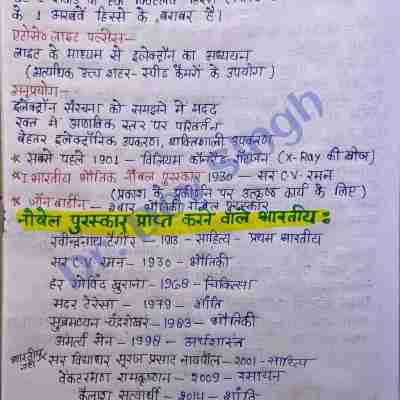 के 1 अरबवें हिस्से के बराबर है।
एटोसेकंड लाइट पल्सेस-
लाइट के माध्यम से इलेक्ट्रॉन का अध्ययन
(अत्यधिक उच्च शटर-स्पीड कैमरों के उपयोग)
अनुप्रयोग-
इलेक्ट्रॉन संरचना को समझने में मदद
रक्त में आणविक स्तर पर परिवर्तन
बेहतर इलेक्ट्रॉनिक उपकरण, शक्तिशाली उपकरण
* सबसे पहले 1901 - विलियम कॉनरैड रोंटजन (X-Ray की खोज)
*। भारतीय भौतिक नोबेल पुरस्कार 1930 - सर C.V. रमन
(प्रकाश के प्रकीर्णन पर उत्कृष्ठ कार्य के लिए)
* जॉन बार्डीन - 2 बार भौतिकी नोबेल पुरस्कार
नोबेल पुरस्कार प्राप्त करने वाले भारतीय :
रवीन्द्रनाथ टैगोर - 1913 - साहित्य - प्रथम भारतीय
सर C.V रमन - 1930 - भौतिकी
हर गोविंद खुराना - 1968 - चिकित्सा
मदर टेरेसा - 1979 - शांति
सुब्रमण्यन चंद्रशेखर - 1983 - भौतिकी
अमर्त्य सेन - 1998 - अर्थशास्त्र
भारतीय मूल सर विद्याधर सूरज प्रसाद नायपॉल - 2001 - साहित्य
वेंकटरमण रामकृष्णन - 2009 - रसायन
कैलाश सत्यार्थी - 2014 - शांति